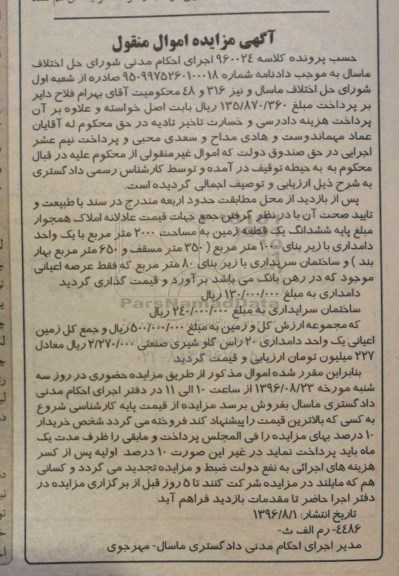 آگهی مزایده اموال منقول
حسب پرونده کلاسه ۹۶۰۰۲۴ اجرای احکام مدنی شورای حل اختلاف
ماسال به موجب دادنامه شماره ۹۵۰۹۹۷۵۲۶۰۱۰۰۰۱۸ صادره از شعبه اول
شورای حل اختلاف ماسال و نیز ۳۱۶ و ۴۸ محکومیت آقای بهرام فلاح دایر
بر پرداخت مبلغ ۱۳۵/۸۷۰/۳۶۰ ریال بابت اصل خواسته و علاوه بر آن
پرداخت هزینه دادرسی و خسارت تاخیر تادیه در حق محکوم له آقایان
عماد مهماندوست و هادی مداح و سعدی محبی و پرداخت نیم عشر
اجرایی در حق صندوق دولت که اموال غیرمنقولی از محکوم علیه در قبال
محکوم به به حیطه توقیف در آمده و توسط کارشناس رسمی دادگستری
به شرح ذیل ارزیابی و توصیف اجمالی گردیده است.
پس از بازدید از محل مطابقت حدود اربعه مندرج در سند با طبیعت و
تایید صحت آن با در نظر گرفتن جمع جهات قیمت عادلانه املاک همجوار
مبلغ پایه ششدانگ یک قطعه زمین به مساحت ۲۰۰۰ متر مربع با یک واحد
دامداری با زیر بنای ۱۰۰۰ متر مربع ( ۳۵۰ متر مسقف و ۶۵۰ متر مربع بهار
بند ) و ساختمان سرایداری با زیر بنای ۸۰ متر مربع که فقط عرصه اعیانی
موجود که در رهن بانک می باشد بر آورد و قیمت گذاری گردید
دامداری به مبلغ ۱۳۰/۰۰۰/۰۰۰ ریال
ساختمان سرایداری به مبلغ ۲۴۰/۰۰۰/۰۰۰ ریال
که مجموعه ارزش کل و زمین به مبلغ ۵۰۰/۰۰۰/۰۰۰ ریال و جمع کل زمین
اعیانی یک واحد دامداری ۲۰ راس گاو شیری صنعتی ۲/۲۷۰/۰۰۰ ریال معادل
۲۲۷ میلیون تومان ارزیابی و قیمت گردید
بنابراین مقرر شده اموال مذکور از طریق مزایده حضوری در روز سه
شنبه مورخه ۱۳۹۶/۰۸/۲۳ از ساعت ۱۰ الی ۱۱ در دفتر اجرای احکام مدنی
دادگستری ماسال بفروش برسد مزایده از قیمت پایه کارشناسی شروع
به کسی که بالاترین قیمت را پیشنهاد کند فروخته می گردد شخص خریدار
۱۰ درصد بهای مزایده را فی المجلس پرداخت و مابقی را ظرف مدت یک
ماه باید پرداخت نماید در غیر این صورت ۱۰ درصد اولیه پس از کسر
هزینه های اجرائی به نفع دولت ضبط و مزایده تجدید می گردد و کسانی
هم که مایلند در مزایده شرکت کنند تا ۵ روز قبل از برگزاری مزایده در
دفتر اجرا حاضر تا مقدمات بازدید فراهم آید
تاریخ انتشار: ۱۳۹۶/۸/۱
۴۴۸۶- رم الف ث-
مدیر اجرای احکام مدنی دادگستری ماسال- مهرجوی
ParsNamadData